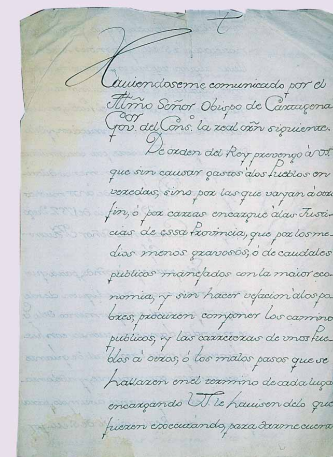 Haviendoseme comunicado por el
Illmo Señor Obispo de Cartagena
Gov.or del Cons.o la real orñ siguiente.
De orden del Rey prevengo à VS
que sin causar gastos alos Pueblos en
veredas, sino por las que vayan à otro
fin, ò por cartas encargue àlas Justi-
cias de essa Provincia, que por los me-
dios menos gravosos, ò de caudales
publicos manejados con la maior eco-
nomia, y sin hacer vejacion alos po-
bres, procuren componer los camino
publicos, y las carreteras de unos Pue-
blos à otros, ò los malos pasos que se
hallaren en el termino de cada lugar
encargando le havisen delo que
fueren executando, para darme cuenta